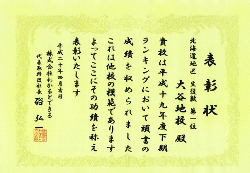 表彰状
北海道地区 生徒数 第一位
大谷地校 殿
貴校は平成十九年度下期
ランキングにおいて頭書の
成績を収められました
これは他校の模範であります
よってここにその功績を称え
表彰いたします
平成二十年四月吉日
株式会社わかるとできる
代表取締役社長